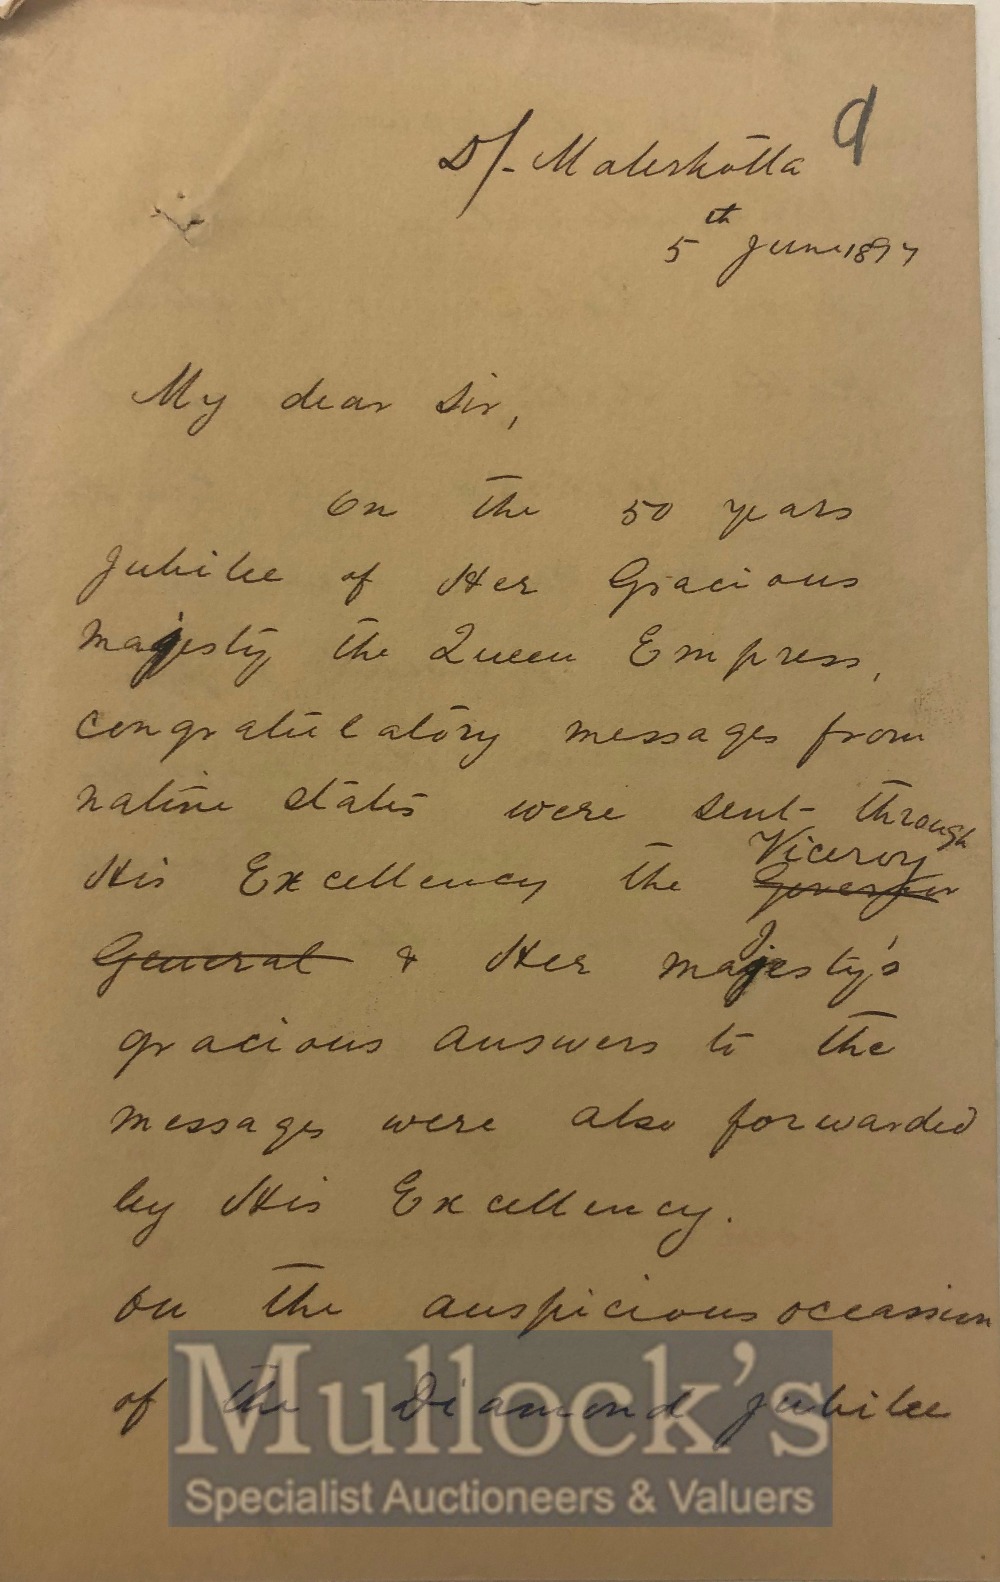 9
D/- Malerkotla
5th June 1897
My dear Sir,
On the 50 years
Jubilee of Her Gracious
Majesty the Queen Empress,
congratulatory messages from
native states were sent through
His Excellency the Governor Viceroy
General & Her Majesty's
gracious answers to the
messages were also forwarded
by His Excellency.
On the auspicious occassion
of the Diamond Jubilee
Mullock's
Specialist Auctioneers & Valuers